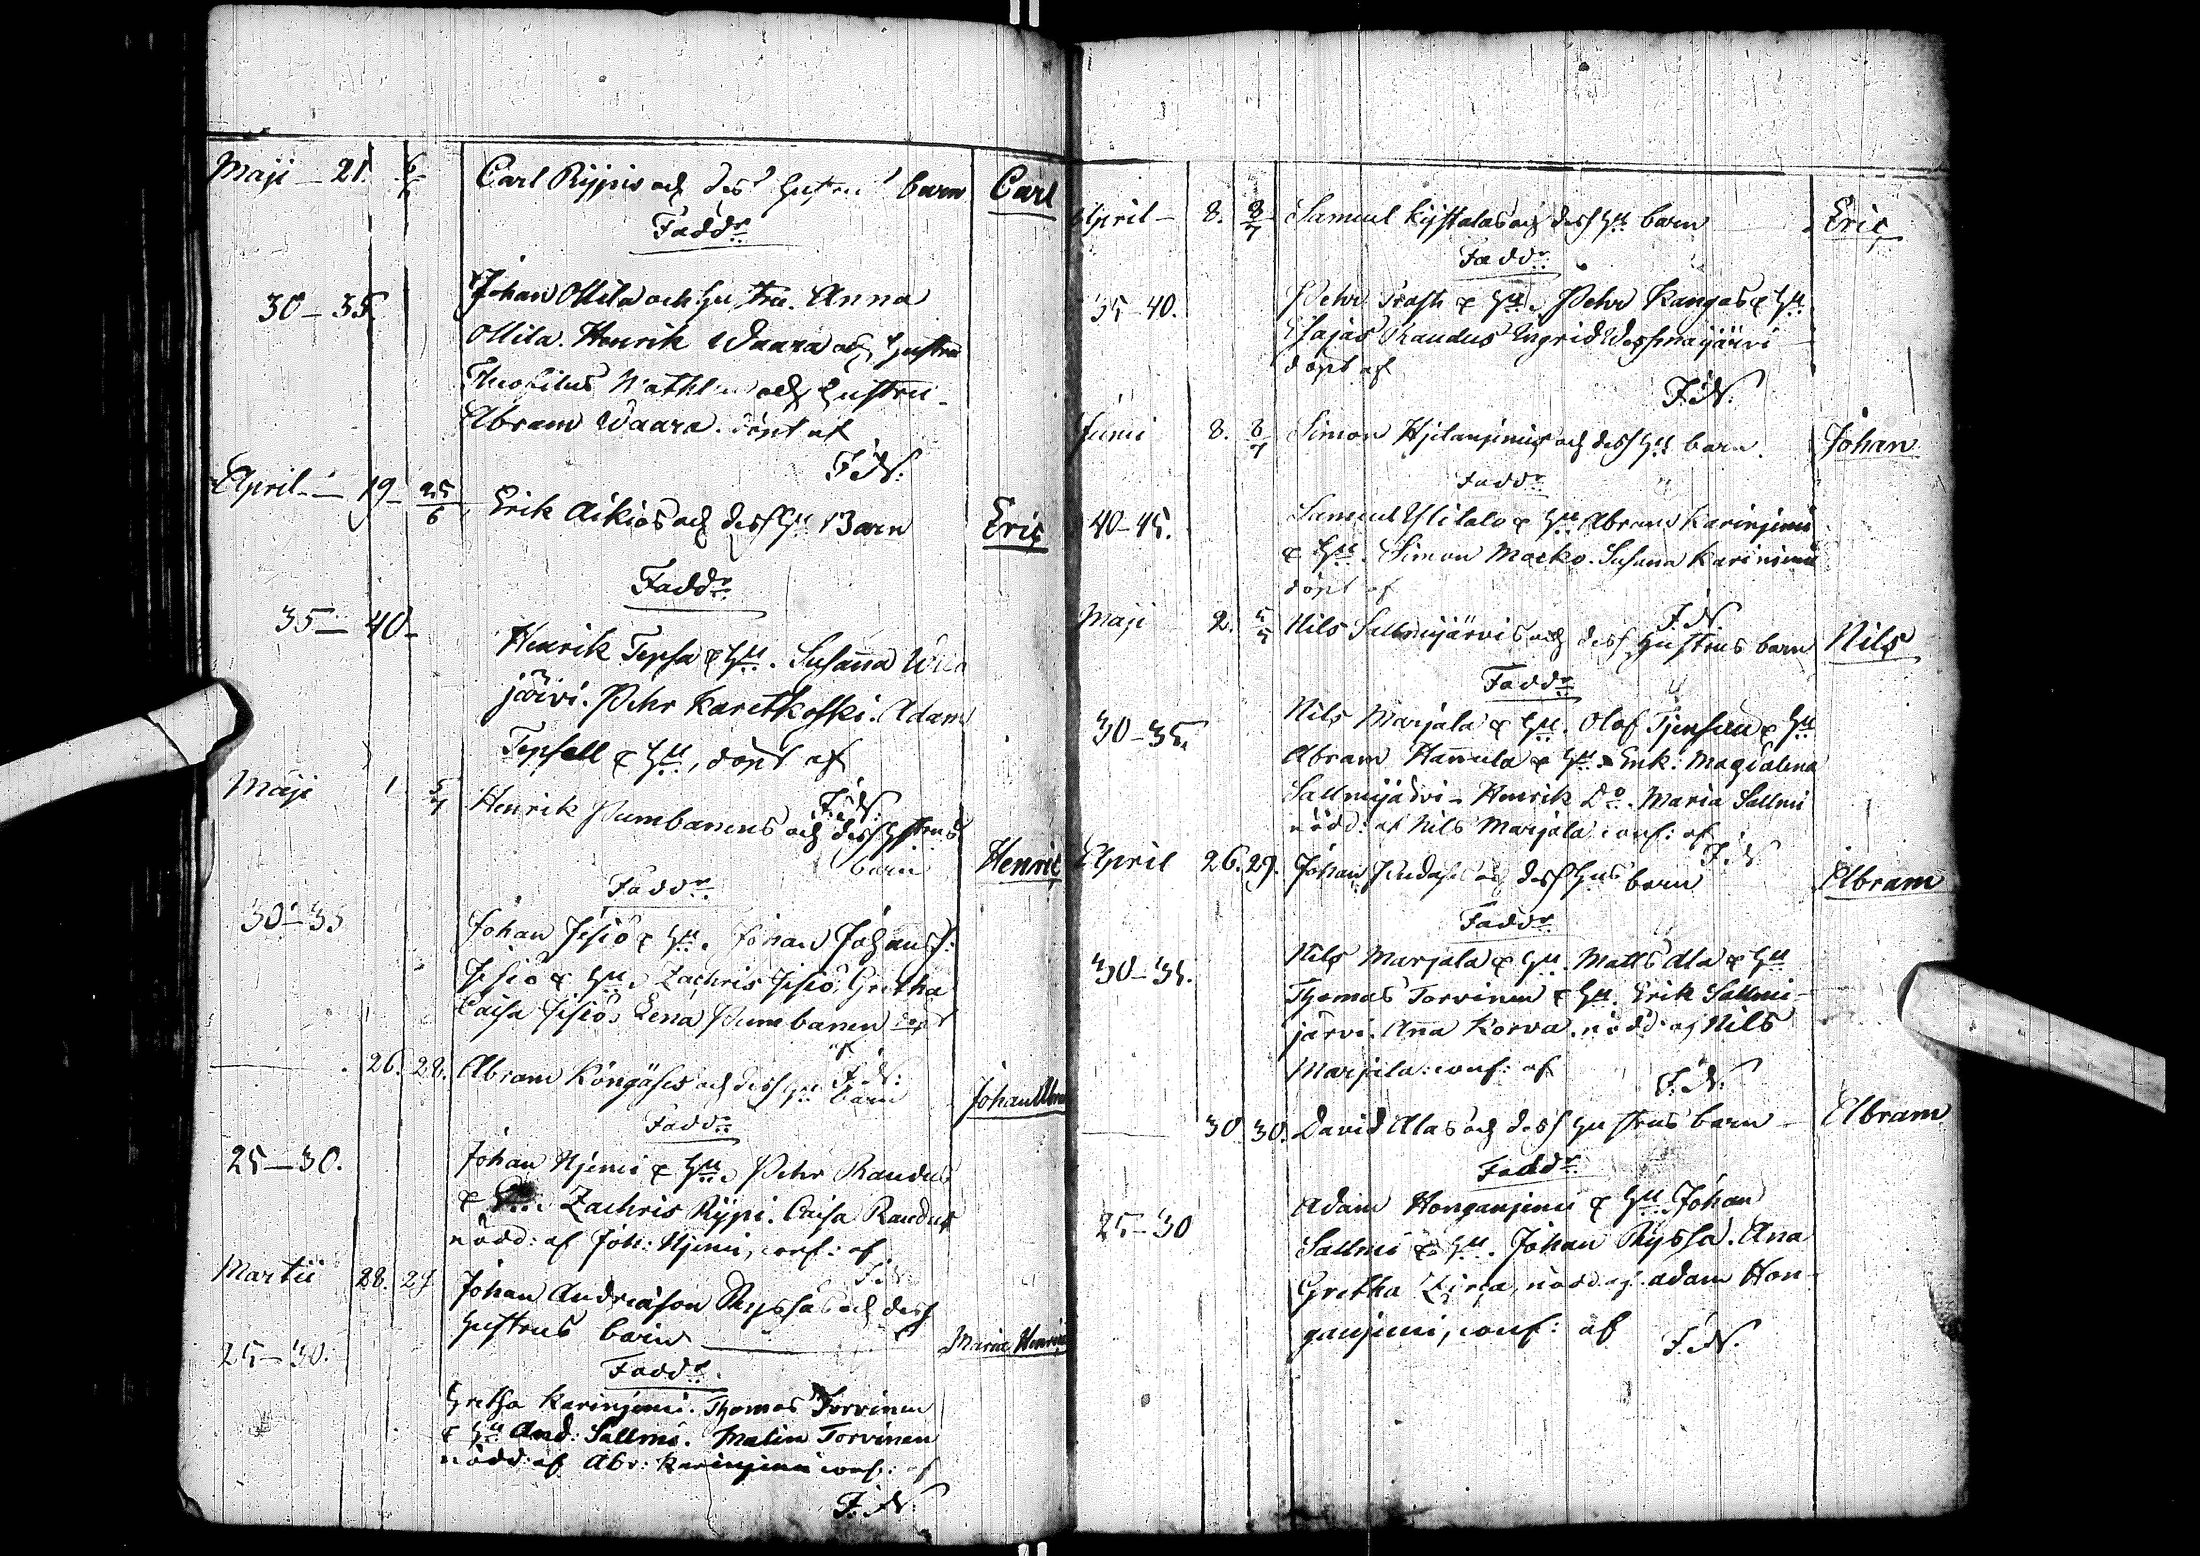 Maji - 21. 6/6 Carl Rÿpis och dess hustrus barn Carl
Faddr
30 - 35. Johan Ollila och hustru. Anna
Ollila. Henrik Waara och hustru
Theofilus och hustru -
Abram Waara. döpt af
F. N.
April - 19 - 25/6 Erik Aikios och dess Hu Barn Eric
Faddr
35 - 40 -
Henrik Tepsa & Hu. Susanna
järvi. Pehr Karetkoski. Adam
Tepsell & Hu, döpt af
F. N.
Maji 1 5/7 Henrik Pumbanens och dess hustrus
barn Henric
Faddr
30 - 35
Johan Jesiö & Hu. Johan Johans:
Jesiö & Hu. Zachris Jesiö, Gretha
Caisa Jesiö, Lena Pumbanen döpt
af
F. N.
- 26. 28. Abram Köngäses och dess Hu barn Johan Abra
Faddr
25 - 30. Johan Njemi & Hu. Pehr Randus
& Zachris Rÿpi. Caisa Randus
nödd: af Joh: Njemi, conf: af
F. N.
Martii 28. 29 Johan Andreason Ryssas och dess
hustrus barn Maria Henrica
25 - 30.
Faddr.
Gretha Karinjemi. Thomas Torvinen
& Hu And: Sallmi. Malin Torvinen
nödd: af Abr: Karinjemi conf: af
F. N.
April - 8. 8/7 Samuel och dess Hu barn Eric
Faddr
35 - 40. Pehr & Hu. Pehr Kangas & Hu
Esajas Randus Ingrid
döpt af
F. N.
Junii 8. 8/7 Simon och dess Hu barn. Johan
Faddr
40 - 45. Samuel Ylitalo & Hu Abram Karinjemi
& Hu. Simon Marko. Susanna Karinjemi
döpt af
F. N
Maji 2. 5/7 Nils Sallmijärvis och dess hustrus barn Nils
Faddr
30 - 35. Nils Marjala & Hu. Olof & Hu
Abram Hannula & Hu Enk: Magdalena
Sallmijärvi - Henrik Do. Maria Sallmi
nödd: af Nils Marjala conf: af
F. N
April 26. 29. Johan och dess Hus barn Abram
Faddr
30 - 35. Nils Marjala & Hu. Matts Ala & Hu
Thomas Torvinen & Hu. Erik Sallmi-
järvi. Anna Korva. nödd: af Nils
Marjala: conf: af
F. N.
- 30 30. David Alas och dess hustrus barn - Abram
Faddr
25 - 30 Adam Honganjemi & Hu. Johan
Sallmi & Hu. Johan Ryssa. Ana
Gretha nödd af. Adam Hon-
ganjemi, conf: af F. N.